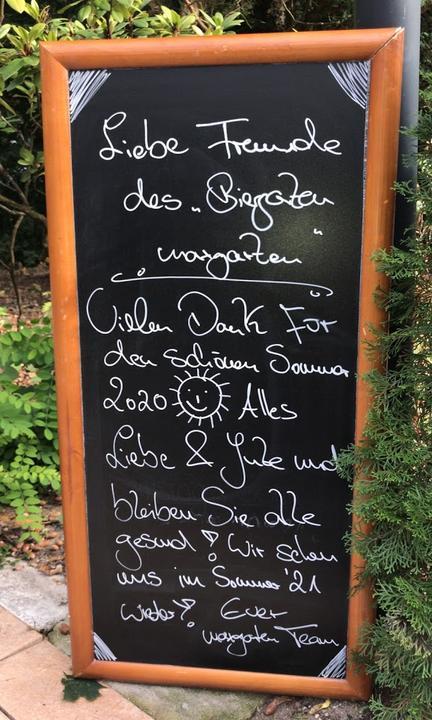 Liebe Freunde
des „Biergarten
margarten"
Vielen Dank Für
den schönen Sommer
2020 Alles
Liebe & Gute und
bleiben Sie alle
gesund! Wir sehen
uns im Sommer '21
wieder! Euer
margarten Team